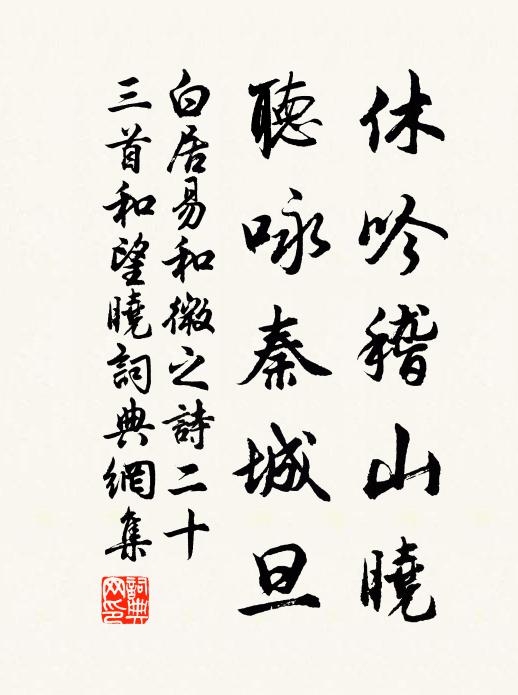 休吟稽山曉
聽咏秦城旦
白居易和微之詩二十
三首和望曉詞典網集
詞典
网印